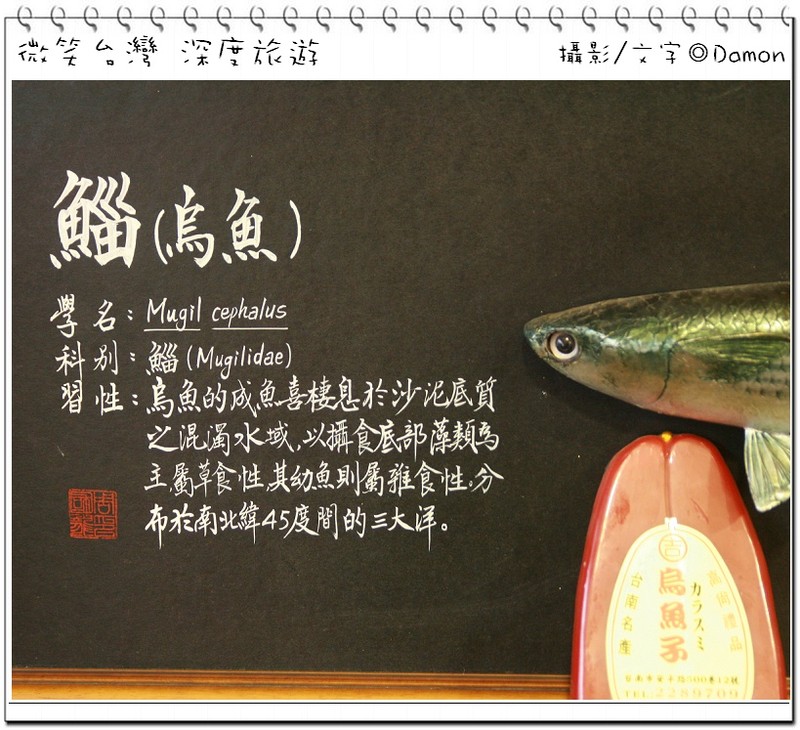 微笑台灣 深度旅遊
攝影/文字©Damon
鯔(烏魚)
學名：Mugil cephalus
科別：鯔(Mugilidae)
習性：烏魚的成魚喜棲息於沙泥底質
之混濁水域,以攝食底部藻類為
主,屬草食性,其幼魚則屬雜食性。分
布於南北緯45度間的三大洋。
吉
高尚禮品
カラスミ
烏魚子
台南名產
TEL:2289709